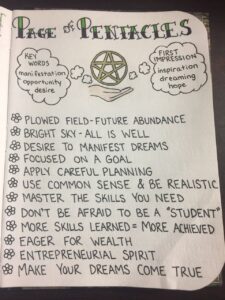 PAGE OF PENTACLES
KEY
WORDS
manifestation
opportunity
desire
FIRST
IMPRESSION
inspiration
dreaming
hope
PLOWED FIELD-FUTURE ABUNDANCE
BRIGHT SKY-ALL IS WELL
DESIRE TO MANIFEST DREAMS
FOCUSED ON A GOAL
APPLY CAREFUL PLANNING
USE COMMON SENSE & BE REALISTIC
MASTER THE SKILLS YOU NEED
DON'T BE AFRAID TO BE A "STUDENT"
MORE SKILLS LEARNED = MORE ACHIEVED
EAGER FOR WEALTH
ENTREPRENEURIAL SPIRIT
MAKE YOUR DREAMS COME TRUE